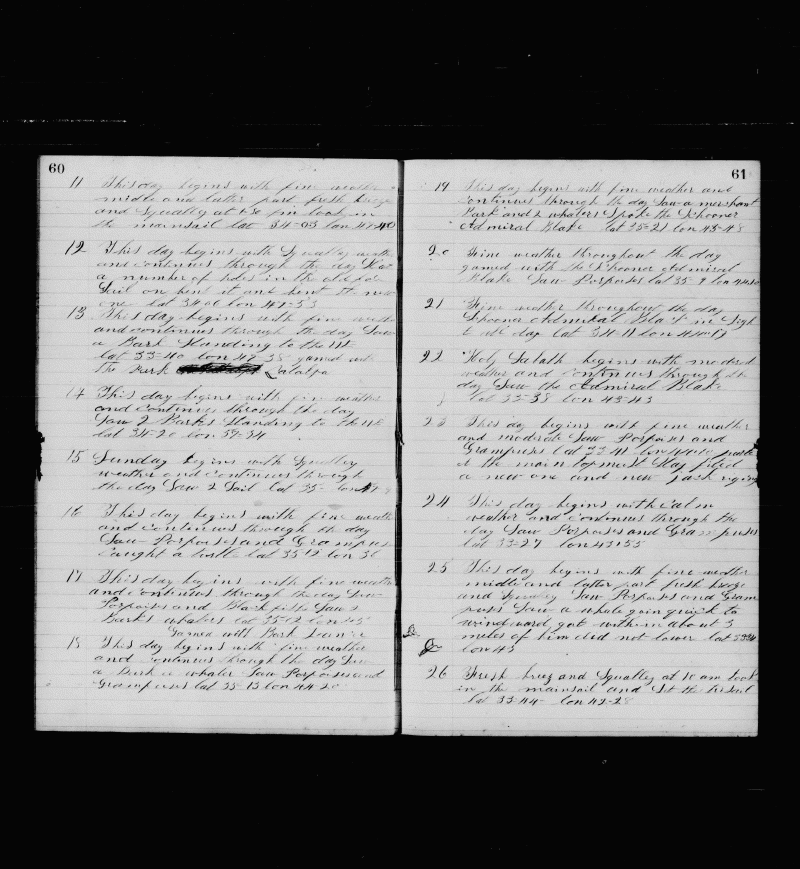 60
11 This day begins with fine weather
middle and latter part fresh breeze
and Squally at pm took in
the mainsail lat 34-03 lon
12 This day begins with Squally weather
and continues through the day
a number of holes in the old
Sail on bent it and bent the new
one lat lon
13 This day begins with fine weath
and continues through the day Saw
a Bark Standing to the
lat 33-40 lon 38 gamed with
the Bark Catalpa
14 This day begins with fine weather
and continues through the day
Saw 2 Barks Standing to the
lat 34-20 lon 39-34
15 Sunday begins with Squally
weather and continues through
the day Saw 2 Sail lat 35- lon
16 This day begins with fine weath
and continues through the day
Saw Porpoises and Grampus
Caught a turtle lat 35-12 lon
17 This day begins with fine weather
and continues through the day Saw
Porpoises and Black fish Saw 2
Barks whalers lat 35-12 lon
Gamed with Bark
18 This day begins with fine weather
and continues through the day Saw
a Bark a whaler Saw Porpoises and
Grampuses lat 35-13 lon 44-20
61
19 This day begins with fine weather and
continues through the day Saw a merchant
Bark and 2 whalers Spoke the Schooner
Admiral Blake lat 35-21 lon 43-48
20 Fine weather throughout the day
gamed with the Schooner Admiral
Blake Saw Porpoises lat 35-9 lon
21 Fine weather throughout the day
Schooner Admiral Blak in Sigh
t all day lat 34-11 lon
22 Holy Sabath begins with moderat
weather and continues through the
day Saw the Admiral Blake
lat 33-38 lon 43-43
23 This day begins with fine weather
and moderate Saw Porpoises and
Grampuses lat lon
the main topmast Stay fited
a new one and new jack
24 This day begins with calm
weather and continues through the
day Saw Porpoises and Grampuses
lat 33-27 lon 43-53
25 This day begins with fine weather
middle and latter part fresh breeze
and Squally Saw Porpoises and Gram
puses Saw a whale goin quick to
windward got within about 3
miles of him did not lower lat
lon 43
26 Fresh breez and Squalley at 10 am took
in the mainsail and Set the
lat 33-44 lon 42-28